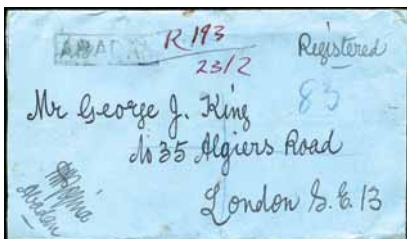 R 193
Registered
23/2
83
Mr George J. King
No 35 Algiers Road
London S.E. 13
Abadan